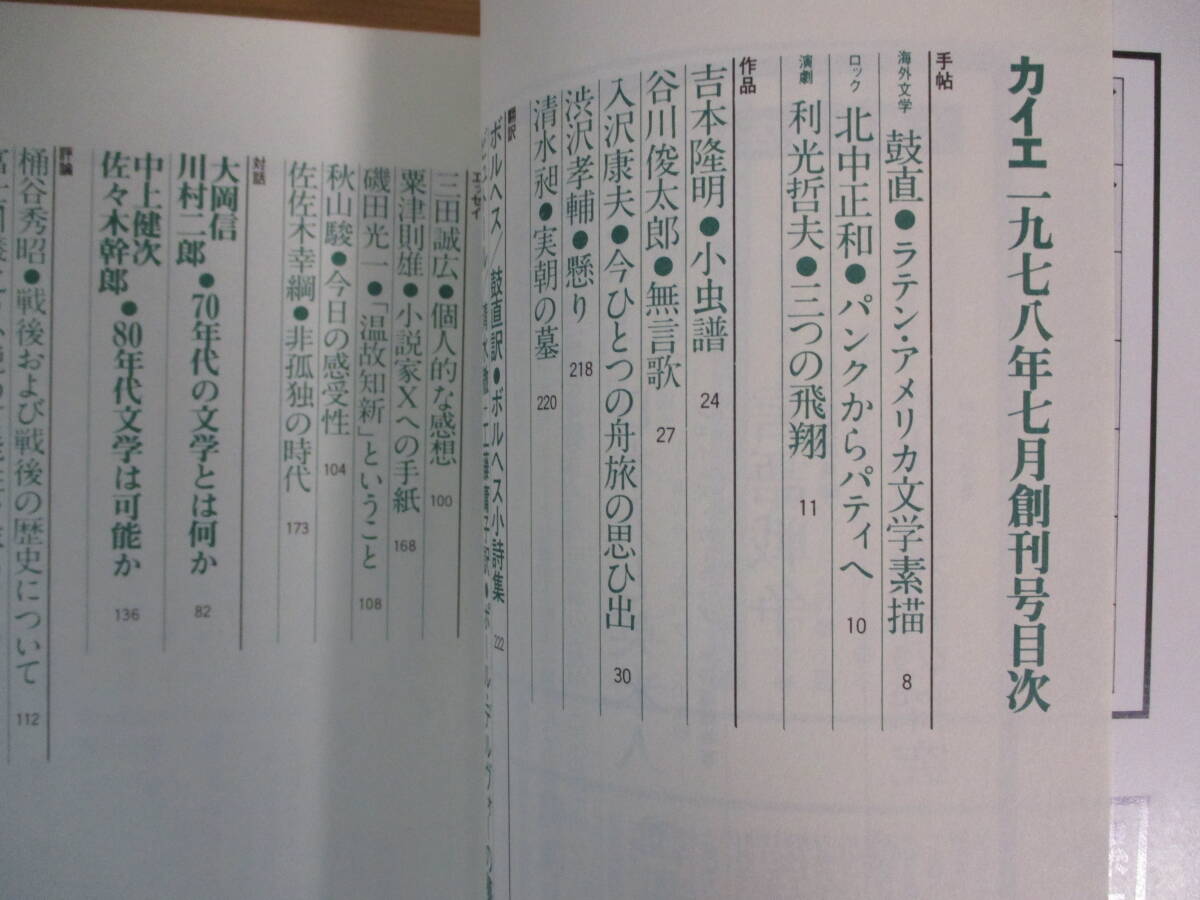 カイエ 一九七八年七月創刊号目次
手帖
海外文学 鼓直●ラテン・アメリカ文学素描 8
ロック 北中正和●パンクからパティへ 10
演劇 利光哲夫●三つの飛翔 11
作品
吉本隆明●小虫譜 24
谷川俊太郎●無言歌 27
入沢康夫●今ひとつの舟旅の思ひ出 30
渋沢孝輔●懸り 218
清水昶●実朝の墓 220
翻訳
ボルヘス/鼓直訳●ボルヘス小詩集 222
エッセイ
三田誠広●個人的な感想 100
粟津則雄●小説家Xへの手紙 168
磯田光一●「温故知新」ということ 108
秋山駿●今日の感受性 104
佐佐木幸綱●非孤独の時代 173
対話
大岡信
川村二郎●70年代の文学とは何か 82
中上健次
佐々木幹郎●80年代文学は可能か 136
評論
桶谷秀昭●戦後および戦後の歴史について 112